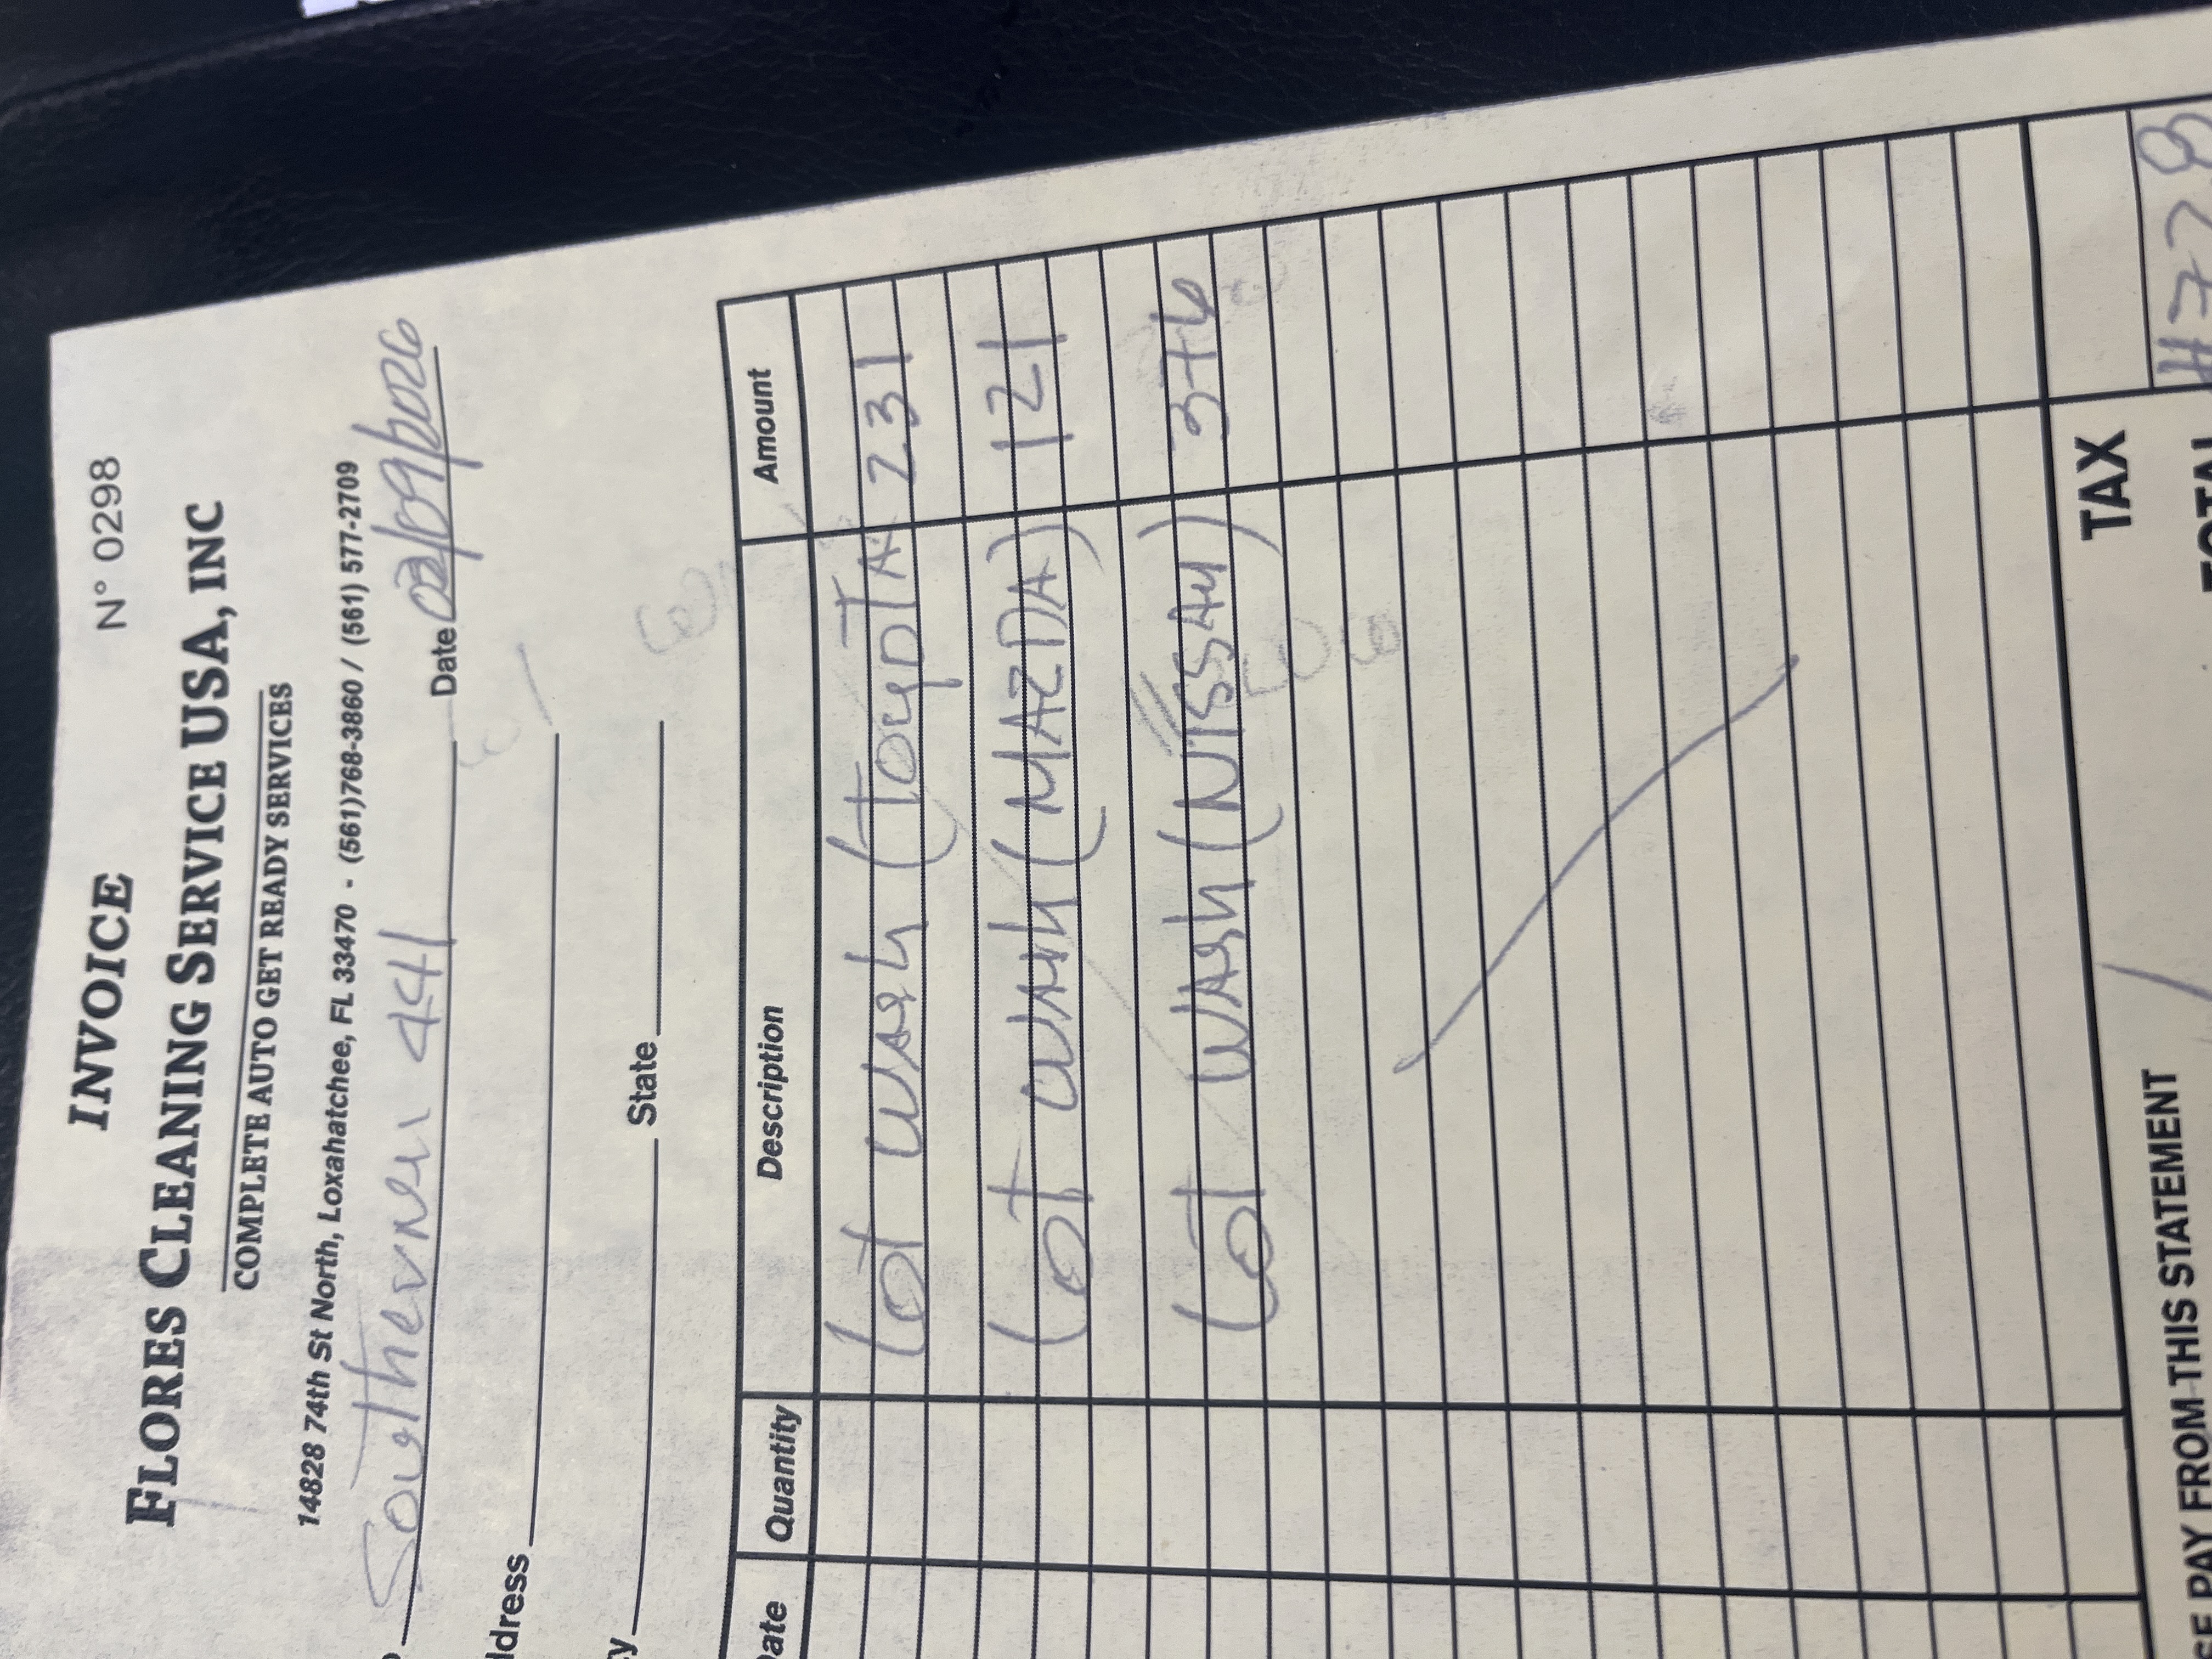 INVOICE N° 0298
FLORES CLEANING SERVICE USA, INC
COMPLETE AUTO GET READY SERVICES
14828 74th St North, Loxahatchee, FL 33470 - (561)768-3860 / (561) 577-2709
441 Date 02/09/2026
ddress
State
Date Quantity Description Amount
Lot Wash (Toyota 231
Lot Wash (MAZDA) 121
Lot Wash (NISSAN) 376
TAX
SE PAY FROM THIS STATEMENT TOTAL #728